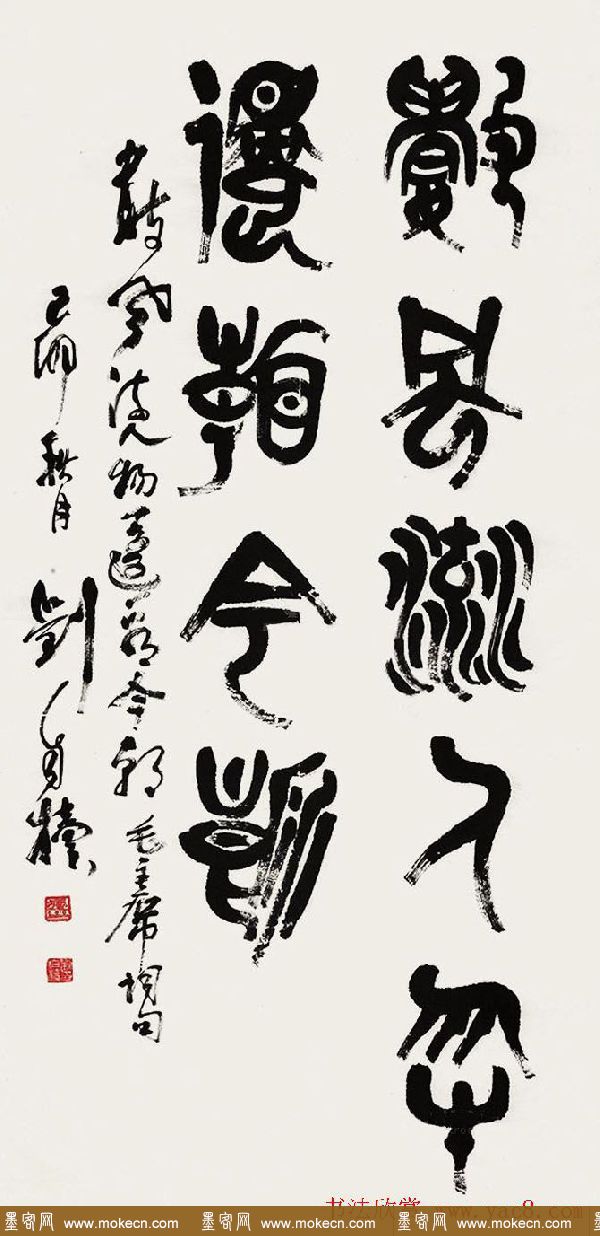 數風流人物
還看今朝
數風流人物還看今朝毛主席詞句
己卯秋月劉自櫝
书法欣赏 www.yac8.com
墨客网 www.mokecn.com 墨客网 www.mokecn.com 墨客网 www.mokecn.com